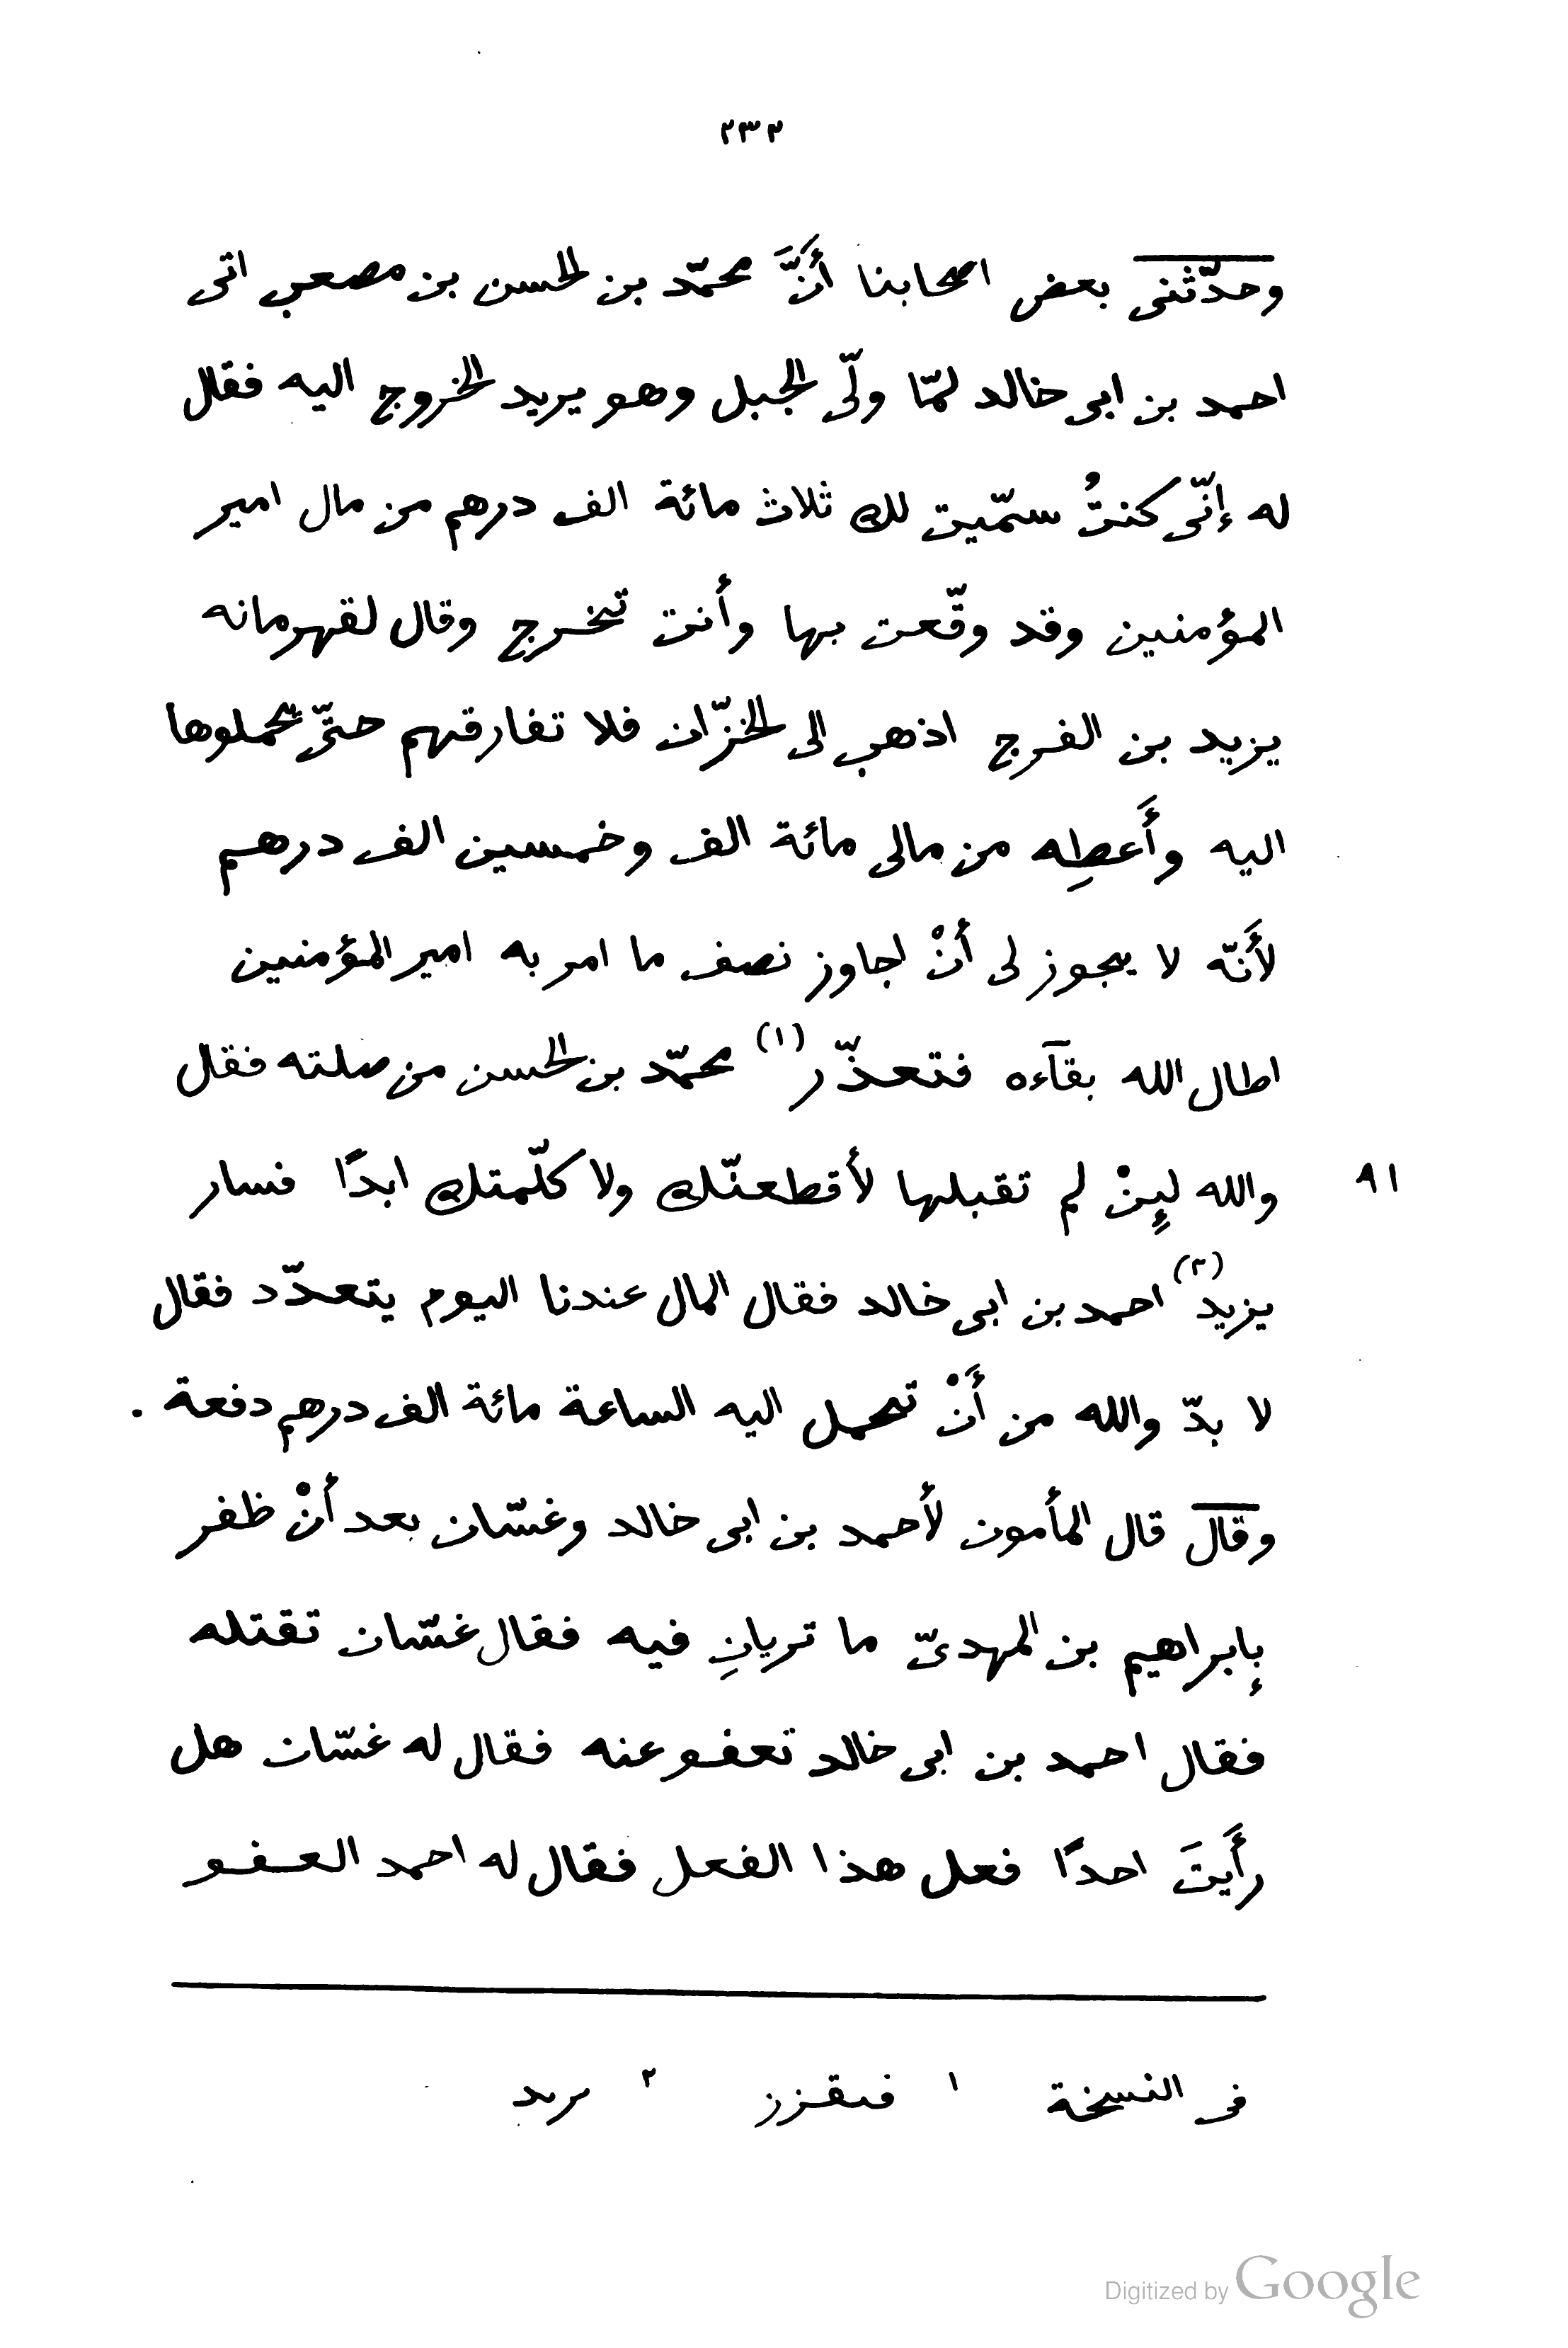 ٢٣٢
وحدّثنى بعض اصحابنا أَنَّ محمّد بن الحسن بن مصعب اتى
احمد بن ابى خالد لمّا ولّى الجبل وهو يريد الخروج اليه فقال
له إنّى كنتُ سمّيت لك ثلاث مائة الف درهم من مال امير
المؤمنين وقد وقّعت بها وأنت تخرج وقال لقهرمانه
يزيد بن الفرج اذهب الى الخزّان فلا تفارقهم حتّى يحملوها
اليه وأَعطِه من مالى مائة الف وخمسين الف درهم
لأَنّه لا يجوز لى أنْ اجاوز نصف ما امر به امير المؤمنين
اطال الله بقآءه فتعذّر (١) محمّد بن الحسن من صلته فقال
والله لإِنْ لم تقبلها لأقطعنّك ولا كلّمتك ابدًا فسار ٩١
يزيد (٢) احمد بن ابى خالد فقال المال عندنا اليوم يتعدّد فقال
لا بدّ والله من أَنْ تحمل اليه الساعة مائة الف درهم دفعة .
وقال قال المأمون لأحمد بن ابى خالد وغسّان بعد أنْ ظفر
بإبراهيم بن المهدىّ ما تريانِ فيه فقال غسّان تقتله
فقال احمد بن ابى خالد تعفو عنه فقال له غسّان هل
رأَيتَ احدًا فعل هذا الفعل فقال له احمد العفو
فى النسخة ١ فىقزز ٢ ىرىد
Digitized by Google